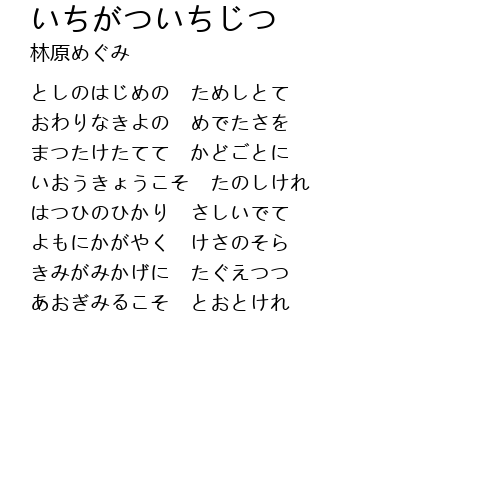 いちがついちじつ
林原めぐみ
としのはじめの　ためしとて
おわりなきよの　めでたさを
まつたけたてて　かどごとに
いおうきょうこそ　たのしけれ
はつひのひかり　さしいでて
よもにかがやく　けさのそら
きみがみかげに　たぐえつつ
あおぎみるこそ　とおとけれ